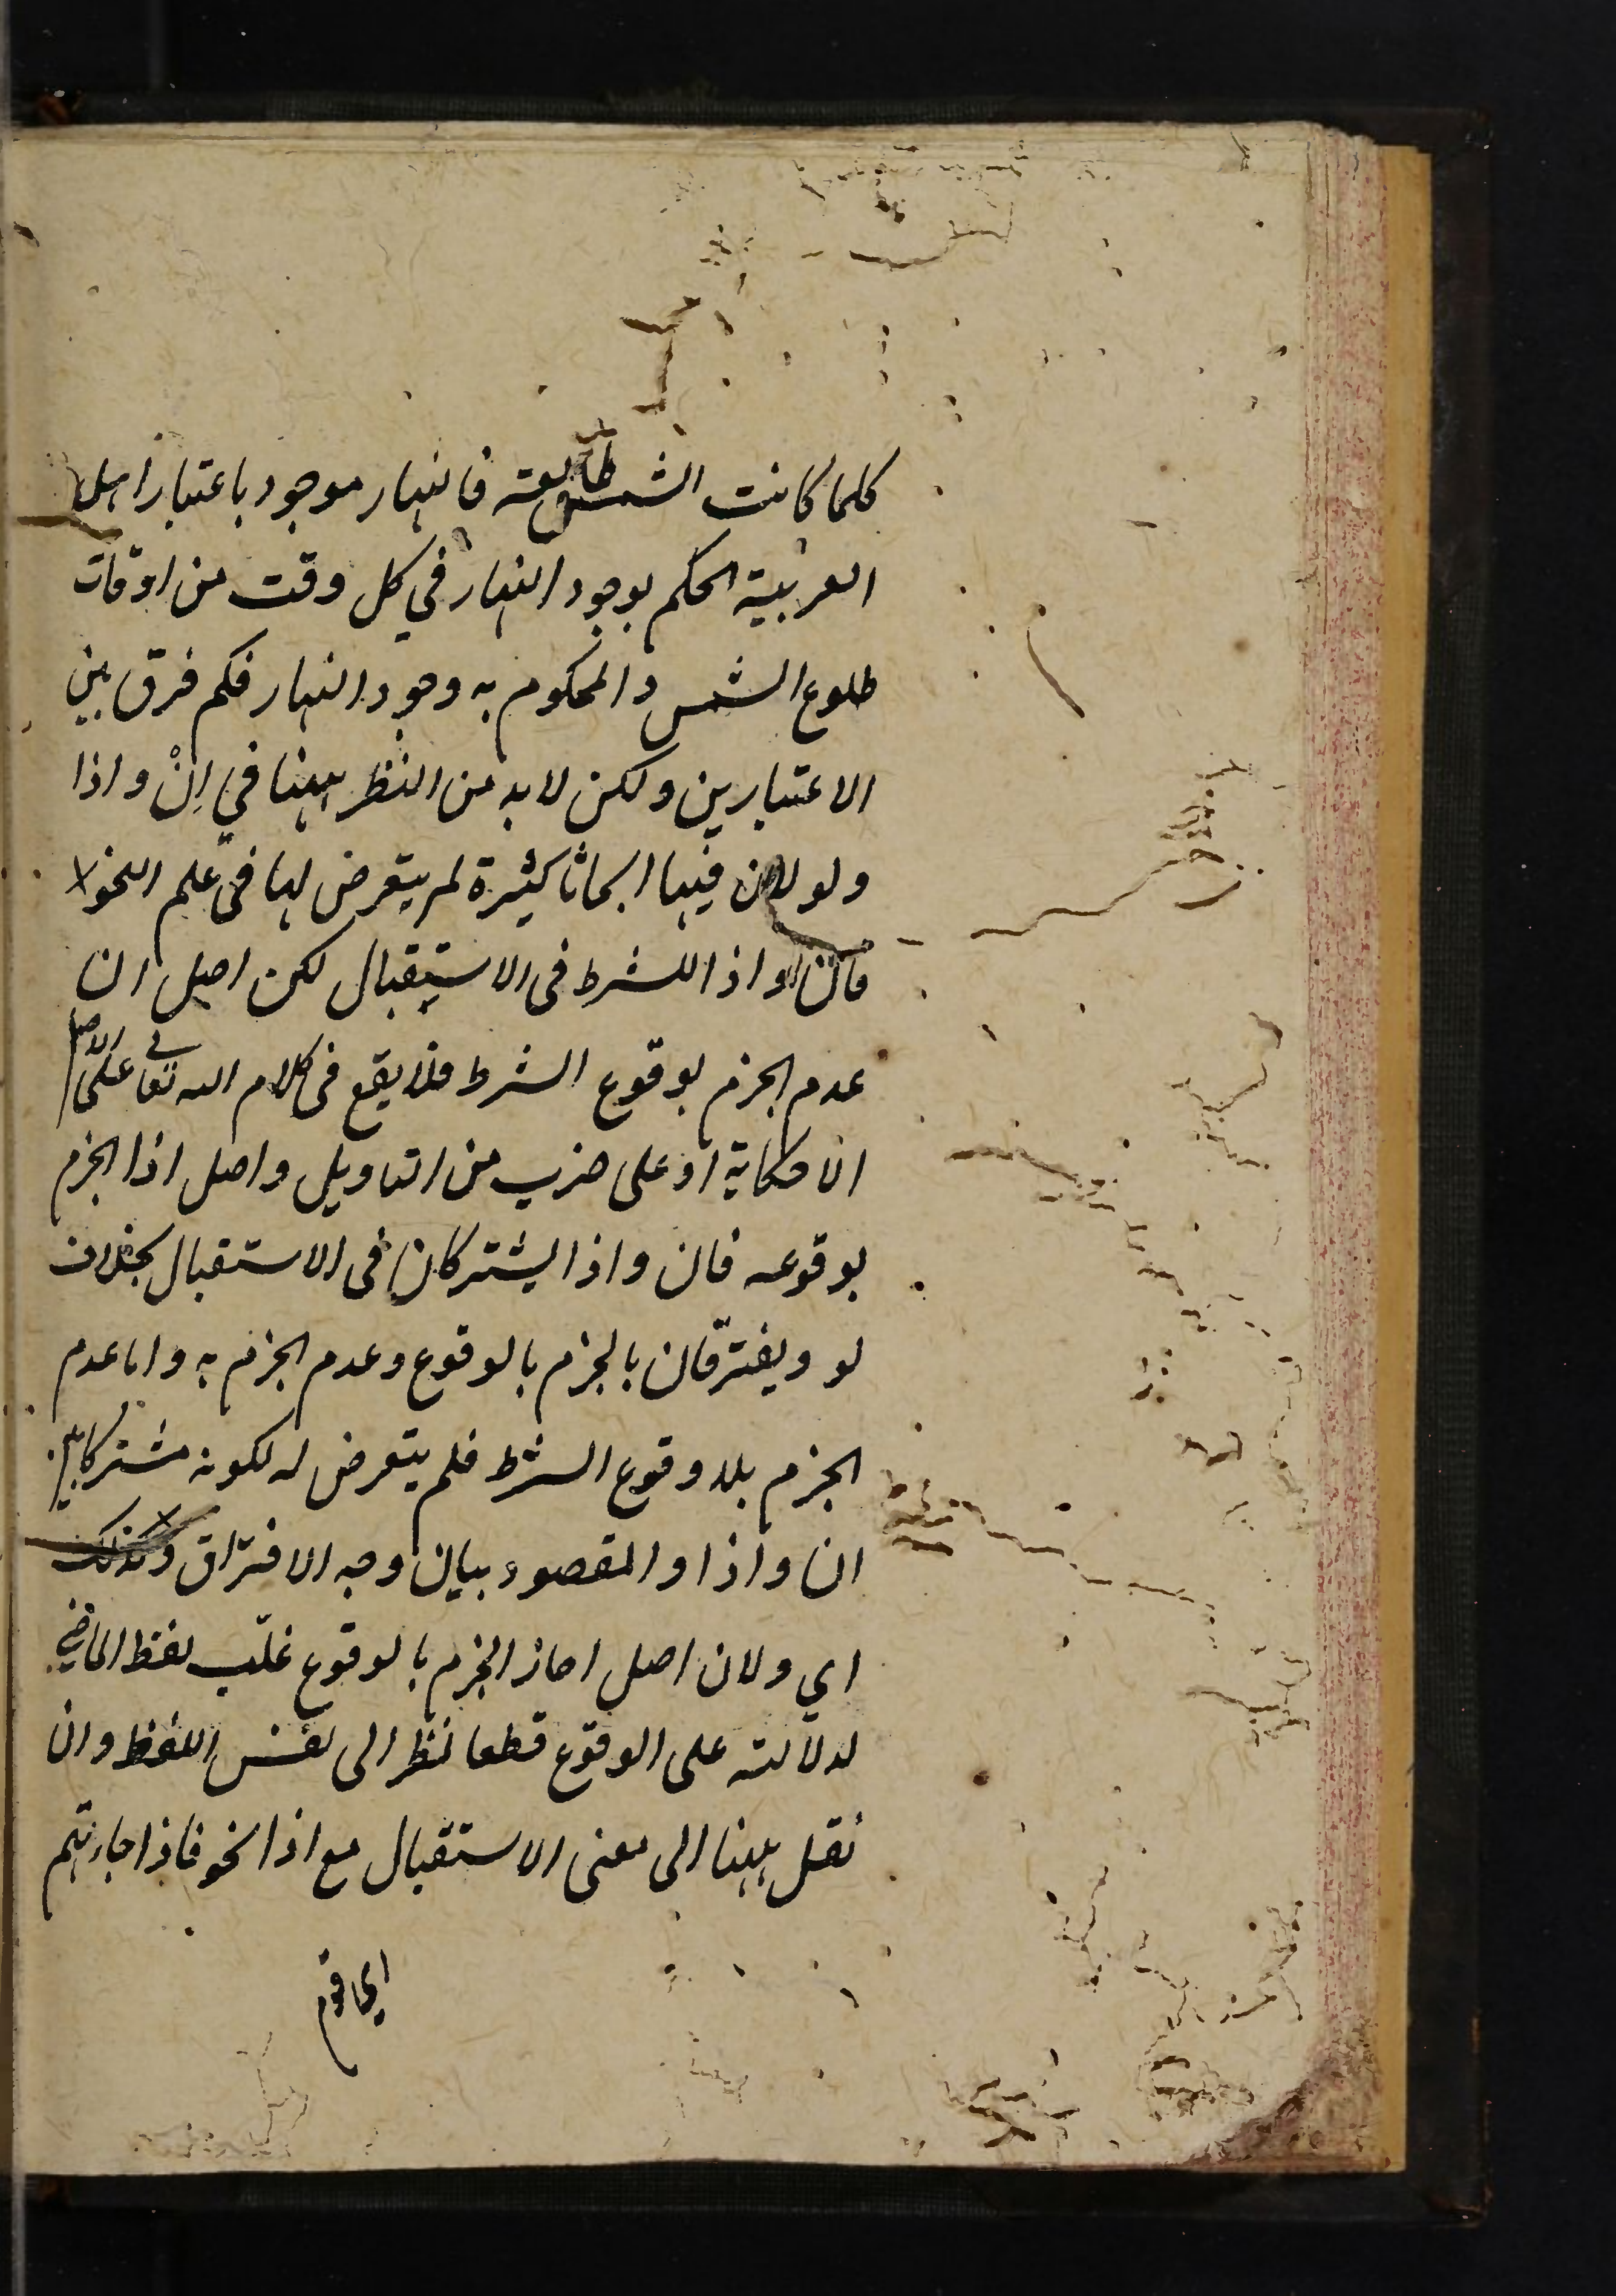 كلما كانت الشمس طالعة فالنهار موجود باعتبار اهل
العربية الحكم بوجود النهار في كل وقت من اوقات
طلوع الشمس والمحكوم به وجود النهار فكم فرق بين
الاعتبارين ولكن لابد من النظر ههنا في اِنْ واذا
ولو لان فيها ابحاثا كثيرة لم يتعرض لها في علم النحو
فان واذا للشرط في الاستقبال لكن اصل ان
عدم الجزم بوقوع الشرط فلا يقع في كلام الله تعالى على الاصل
الا حكاية او على ضرب من التاويل واصل اذا الجزم
بوقوعه فان واذا يشتركان في الاستقبال بخلاف
لو ويفترقان بالجزم بالوقوع وعدم الجزم به واما عدم
الجزم بلا وقوع الشرط فلم يتعرض له لكونه مشتركا بين
ان واذا والمقصود بيان وجه الافتراق وكذلك
اي ولان اصل اذا الجزم بالوقوع غلّب لفظ الماضي
لدلالته على الوقوع قطعا نظرا الى نفس اللفظ وان
نقل ههنا الى معنى الاستقبال مع اذا نحو فاذا جاءتهم
اي قوم